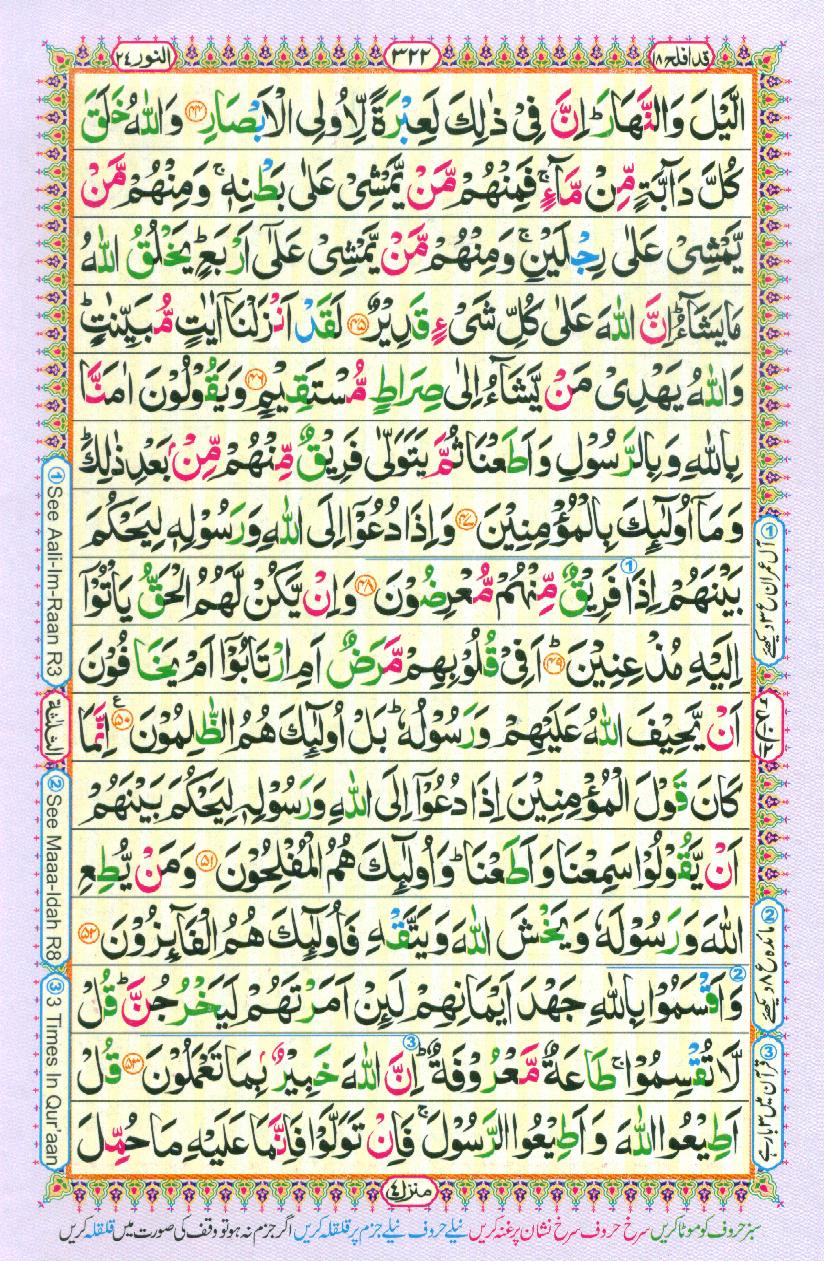 قد افلح ۱۸
۳۲۲
النور ۲٤
الَّيْلَ وَالنَّهَارَ ؕ اِنَّ فِىْ ذٰلِكَ لَعِبْرَةً لِّاُولِى الْاَبْصَارِ ﴿۴۴﴾ وَاللّٰهُ خَلَقَ
كُلَّ دَآبَّةٍ مِّنْ مَّآءٍ ۚ فَمِنْهُمْ مَّنْ يَّمْشِىْ عَلٰى بَطْنِهٖ ۚ وَمِنْهُمْ مَّنْ
يَّمْشِىْ عَلٰى رِجْلَيْنِ ۚ وَمِنْهُمْ مَّنْ يَّمْشِىْ عَلٰٓى اَرْبَعٍ ؕ يَخْلُقُ اللّٰهُ
مَا يَشَآءُ ؕ اِنَّ اللّٰهَ عَلٰى كُلِّ شَىْءٍ قَدِيْرٌ ﴿۴۵﴾ لَقَدْ اَنْزَلْنَاۤ اٰيٰتٍ مُّبَيِّنٰتٍ ؕ
وَاللّٰهُ يَهْدِىْ مَنْ يَّشَآءُ اِلٰى صِرَاطٍ مُّسْتَقِيْمٍ ﴿۴۶﴾ وَيَقُوْلُوْنَ اٰمَنَّا
بِاللّٰهِ وَبِالرَّسُوْلِ وَاَطَعْنَا ثُمَّ يَتَوَلّٰى فَرِيْقٌ مِّنْهُمْ مِّنْۢ بَعْدِ ذٰلِكَ ؕ
وَمَاۤ اُولٰٓئِكَ بِالْمُؤْمِنِيْنَ ﴿۴۷﴾ وَاِذَا دُعُوْۤا اِلَى اللّٰهِ وَرَسُوْلِهٖ لِيَحْكُمَ
بَيْنَهُمْ اِذَا فَرِيْقٌ مِّنْهُمْ مُّعْرِضُوْنَ ﴿۴۸﴾ ① وَاِنْ يَّكُنْ لَّهُمُ الْحَقُّ يَاْتُوْۤا
اِلَيْهِ مُذْعِنِيْنَ ﴿۴۹﴾ اَفِىْ قُلُوْبِهِمْ مَّرَضٌ اَمِ ارْتَابُوْۤا اَمْ يَخَافُوْنَ
اَنْ يَّحِيْفَ اللّٰهُ عَلَيْهِمْ وَرَسُوْلُهٗ ؕ بَلْ اُولٰٓئِكَ هُمُ الظّٰلِمُوْنَ ﴿۵۰﴾ ع اِنَّمَا
كَانَ قَوْلَ الْمُؤْمِنِيْنَ اِذَا دُعُوْۤا اِلَى اللّٰهِ وَرَسُوْلِهٖ لِيَحْكُمَ بَيْنَهُمْ
اَنْ يَّقُوْلُوْا سَمِعْنَا وَاَطَعْنَا ؕ وَاُولٰٓئِكَ هُمُ الْمُفْلِحُوْنَ ﴿۵۱﴾ وَمَنْ يُّطِعِ
اللّٰهَ وَرَسُوْلَهٗ وَيَخْشَ اللّٰهَ وَيَتَّقْهِ فَاُولٰٓئِكَ هُمُ الْفَآئِزُوْنَ ﴿۵۲﴾
② وَاَقْسَمُوْا بِاللّٰهِ جَهْدَ اَيْمَانِهِمْ لَئِنْ اَمَرْتَهُمْ لَيَخْرُجُنَّ ؕ قُلْ
لَّا تُقْسِمُوْا ۚ طَاعَةٌ مَّعْرُوْفَةٌ ؕ ③ اِنَّ اللّٰهَ خَبِيْرٌۢ بِمَا تَعْمَلُوْنَ ﴿۵۳﴾ قُلْ
اَطِيْعُوا اللّٰهَ وَاَطِيْعُوا الرَّسُوْلَ ۚ فَاِنْ تَوَلَّوْا فَاِنَّمَا عَلَيْهِ مَا حُمِّلَ
① آل عمران ع ۳ دیکھئے
② مائدہ ع ۸ دیکھئے
③ قرآن میں ۳ بار ہے
① See Aali-Im-Raan R3
② See Maaa-Idah R8
③ 3 Times In Qur'aan
منزل ٤
سبز حروف کو موٹا کریں سرخ حروف سرخ نشان پر غنہ کریں نیلے حروف نیلے جزم پر قلقلہ کریں اگر جزم نہ ہو تو وقف کی صورت میں قلقلہ کریں